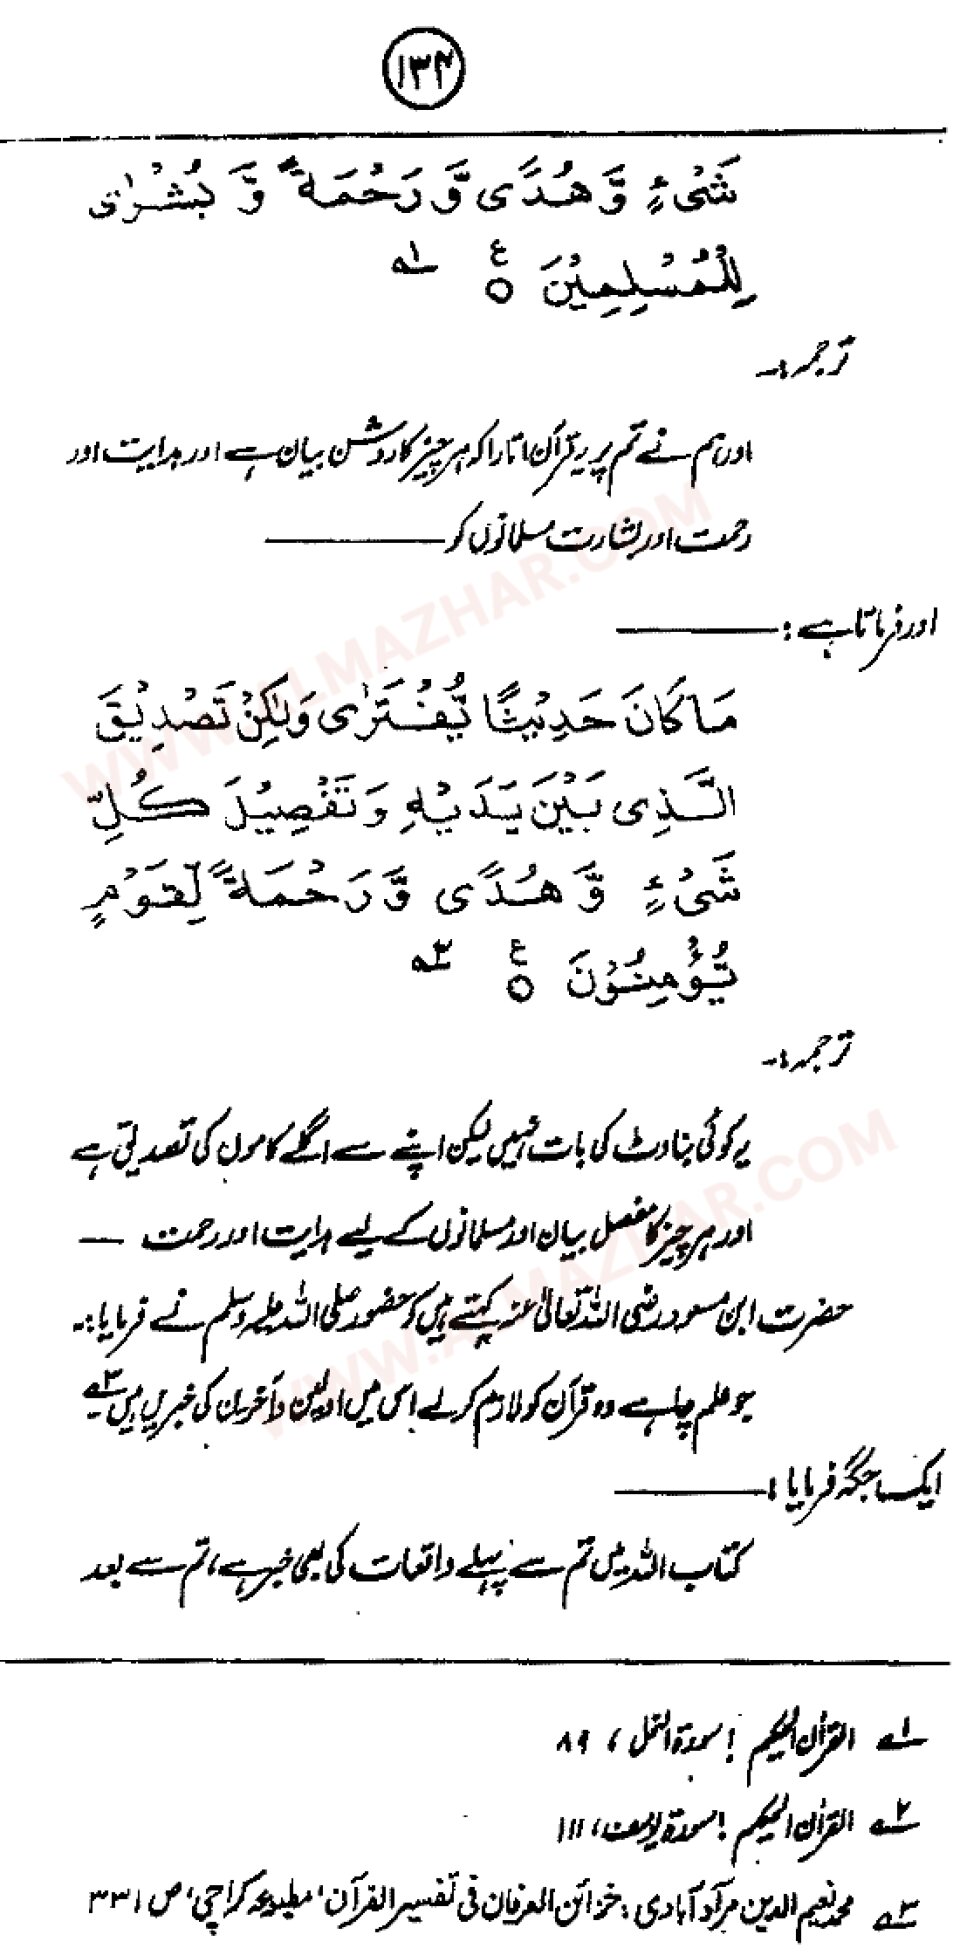 ۱۳۴
شَیْءٍ وَّ هُدًی وَّ رَحْمَۃً وَّ بُشْرٰی
لِلْمُسْلِمِیْنَ ○ ع ۱؎
ترجمہ:۔
اور ہم نے تم پر یہ قرآن اتارا کہ ہر چیز کا روشن بیان ہے اور ہدایت اور
رحمت اور بشارت مسلمانوں کو ———
اور فرماتا ہے : ———
مَا کَانَ حَدِیْثًا یُّفْتَرٰی وَلٰکِنْ تَصْدِیْقَ
الَّذِی بَیْنَ یَدَیْہِ وَ تَفْصِیْلَ کُلِّ
شَیْءٍ وَّ هُدًی وَّ رَحْمَۃً لِّقَوْمٍ
یُّؤْمِنُوْنَ ○ ع ۲؎
ترجمہ:۔
یہ کوئی بناوٹ کی بات نہیں لیکن اپنے سے اگلے کاموں کی تصدیق ہے
اور ہر چیز کا مفصل بیان اور مسلمانوں کے لیے ہدایت اور رحمت —
حضرت ابن مسعود رضی اللہ تعالیٰ عنہ کہتے ہیں کہ حضور صلی اللہ علیہ وسلم نے فرمایا:۔
جو علم چاہے وہ قرآن کو لازم کر لے اس میں اولین و آخرین کی خبریں ہیں ۳؎
ایک جگہ فرمایا : ———
کتاب اللہ میں تم سے پہلے واقعات کی بھی خبر ہے، تم سے بعد
۱؎ القرآن الحکیم ! سورۃ النحل ، ۸۹
۲؎ القرآن الحکیم ! سورۃ یوسف، ۱۱۱
۳؎ محمد نعیم الدین مرآد آبادی : خزائن العرفان فی تفسیر القرآن، مطبوعہ کراچی، ص ۳۳۱
WWW.ALMAZHAR.COM
WWW.ALMAZHAR.COM